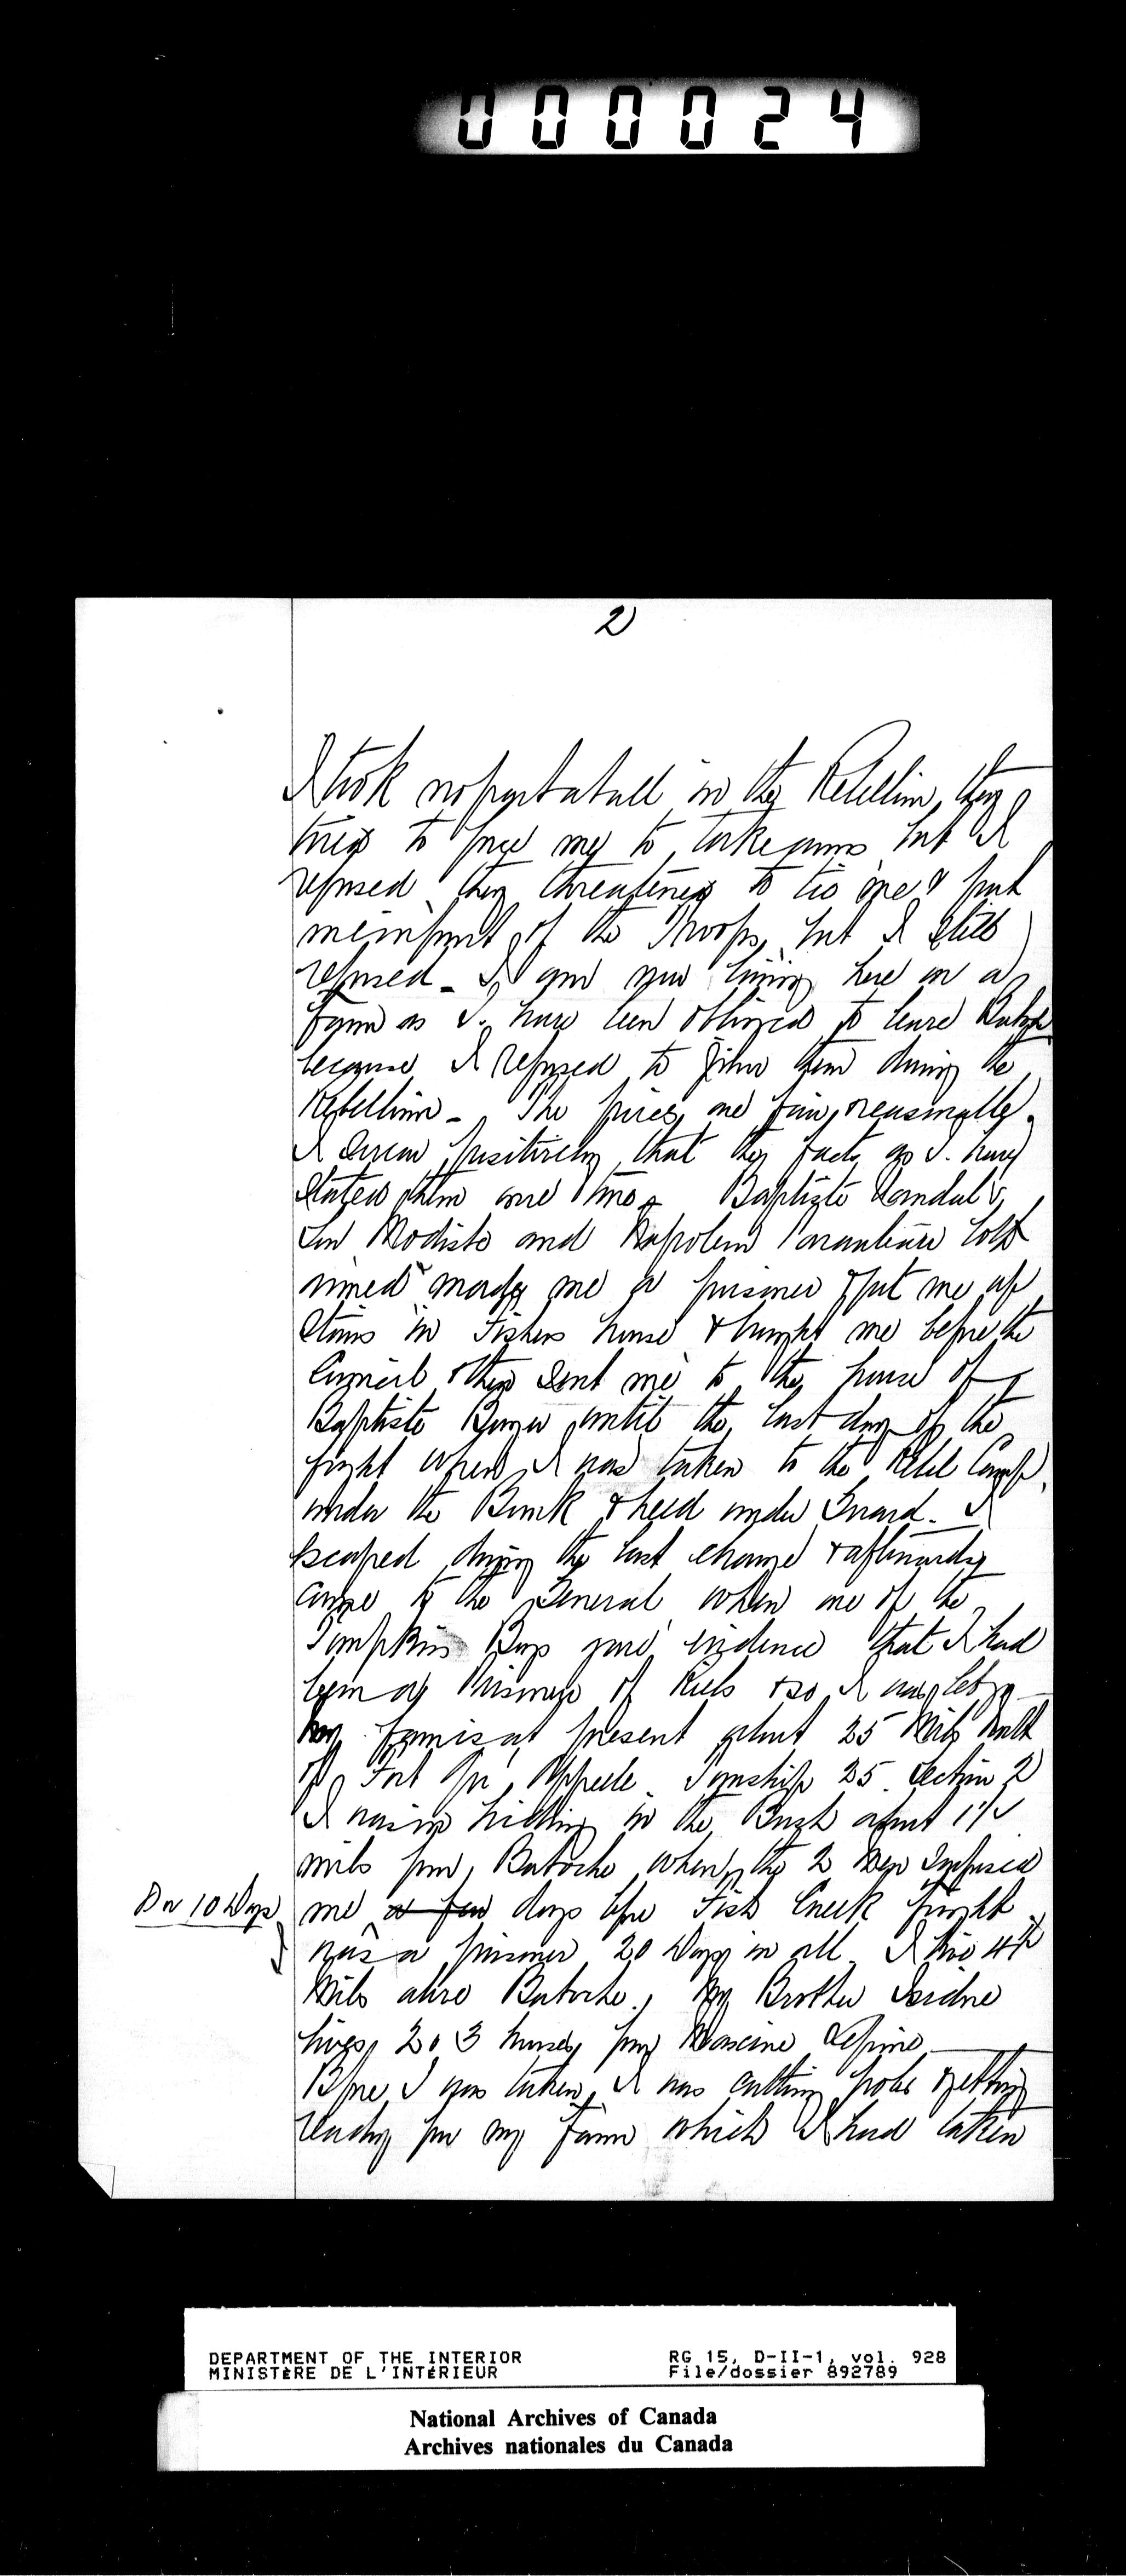 000024
2
I took no part at all in the Rebellion, they
tried to force me to take arms but I
refused they threatened to tie me & put
me in front of the Troops, but I still
refused - I am now living here on a
farm as I have been obliged to leave Batoche
because I refused to follow them during the
Rebellion - The prices are fair, reasonable.
I swear positively that the facts as I have
stated them are true
Baptiste
and Napoleon
made me a prisoner & put me up
stairs in Fishers house & brought me before the
Council & then sent me to the house of
Baptiste Boyer until the last day of the
fight when I was taken to the Rebel Camp
under the Bank & held under Guard. I
escaped during the last charge & afterwards
came to the General when one of the
Tompkins Boys gave evidence that I had
been a Prisoner of Riels & so I was let go
My farm is at present about 25 Miles North
of Fort Qu'Appelle Township 25 Section 2
I was in hiding in the Bush about 1½
miles from Batoche when the 2 Men
8 or 10 Days
me a few days before Fish Creek fight
was a prisoner 20 Days in all I live
Miles above Batoche, My Brother Isidore
lives 2 or 3 houses from Maxime Lepine
Before I was taken, I was cutting poles & getting
ready for my farm which I had taken
DEPARTMENT OF THE INTERIOR
MINISTÈRE DE L'INTÉRIEUR
RG 15, D-II-1, vol. 928
File/dossier 892789
National Archives of Canada
Archives nationales du Canada